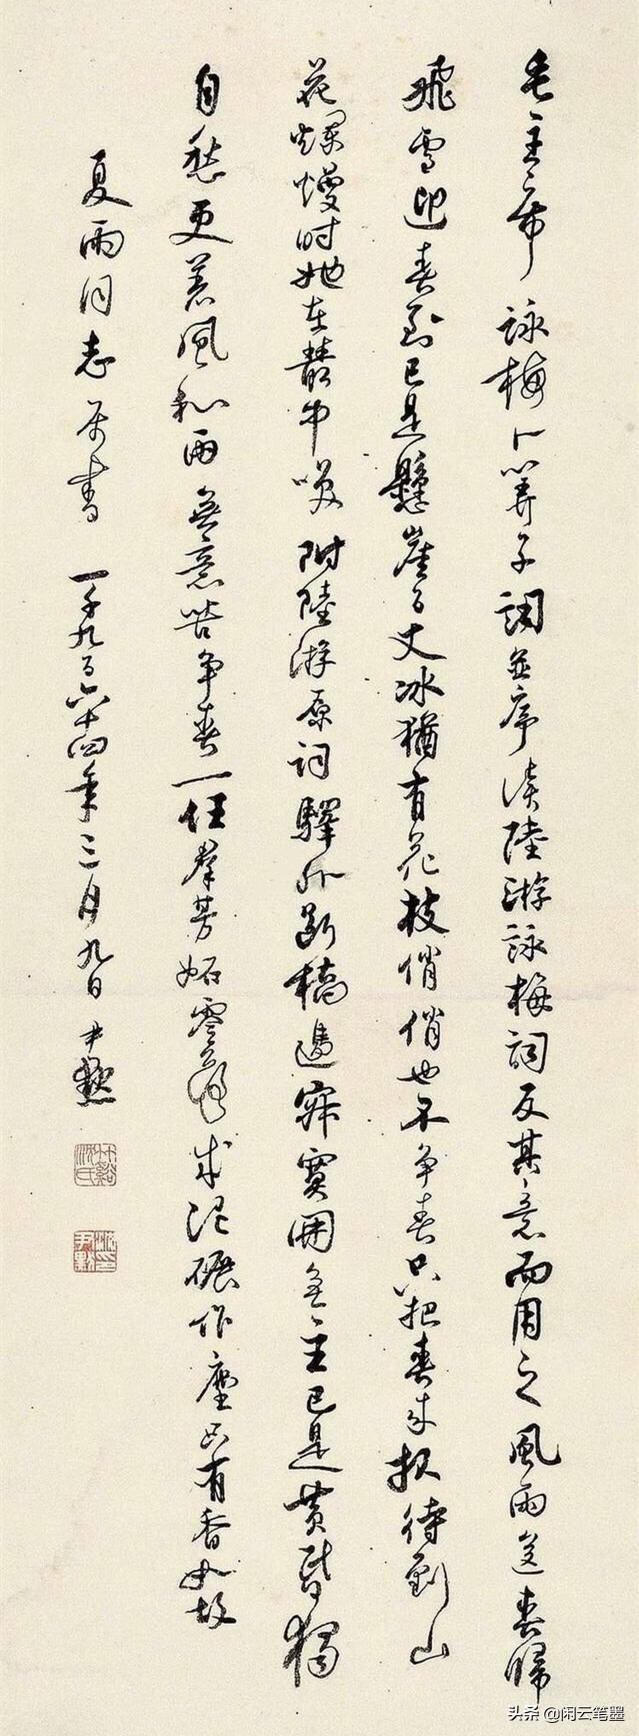 毛主席詠梅卜筭子詞並序讀陸游詠梅詞反其意而用之風雨送春歸
飛雪迎春到已是懸崖百丈冰猶有花枝俏俏也不争春只把春来报待到山
花爛熳时她在叢中咲附陸游原词驛外断橋邊寂寞開無主已是黄昏獨
自愁更著風和雨無意苦争春一任羣芳妬零落成泥碾作塵只有香如故
夏雨同志属書一千九百六十四年三月九日尹默
竹谿沈氏
头条 @闲云笔墨